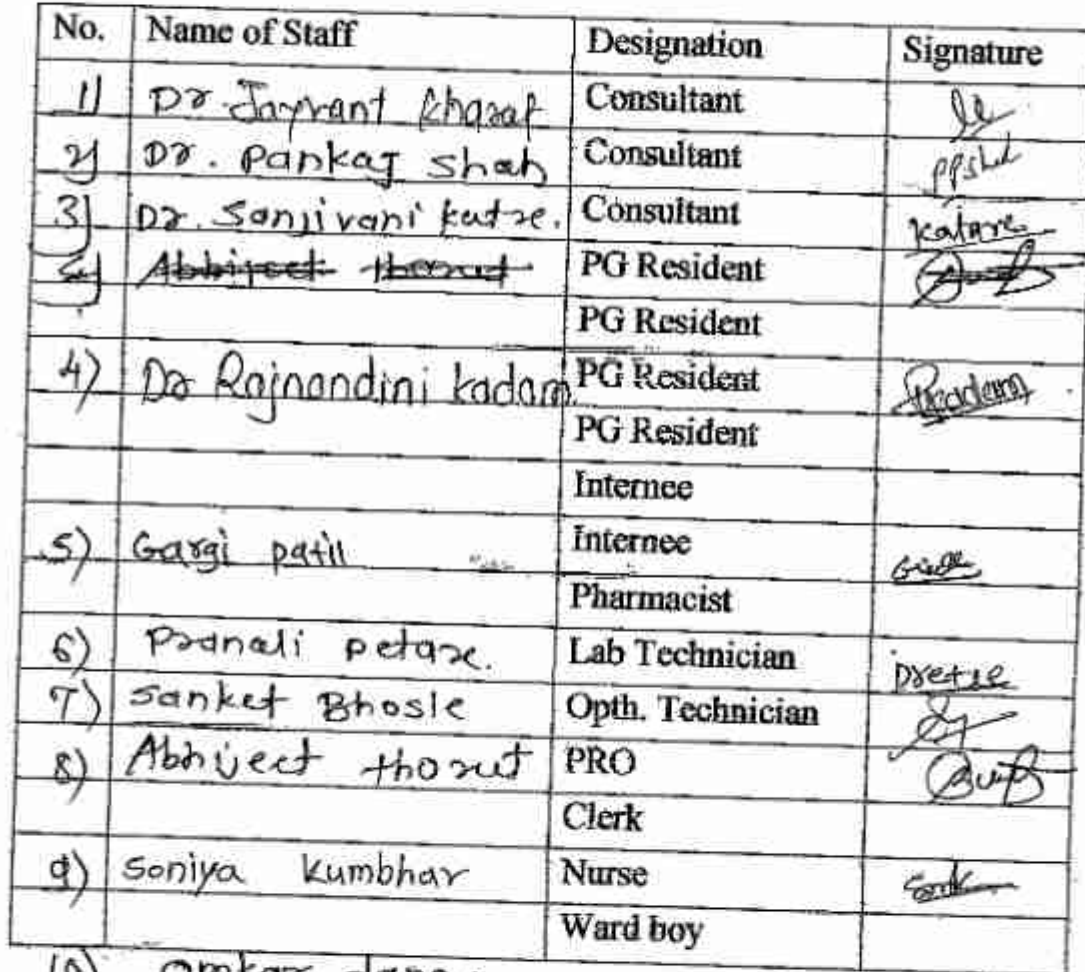 No. Name of Staff Designation Signature
1) Dr. Jayvant kharat Consultant
2) Dr. Pankaj Shah Consultant ppshah
3) Dr. Sanjivani katre. Consultant Katare
4) Abhijeet thorut PG Resident
PG Resident
4) Dr Rajnandini kadam. PG Resident
PG Resident
Internee
5) Gargi patil Internee
Pharmacist
6) Pranali petare. Lab Technician
7) Sanket Bhosle Opth. Technician
8) Abhijeet thorut PRO
Clerk
9) Soniya Kumbhar Nurse
Ward boy
10) Omkar